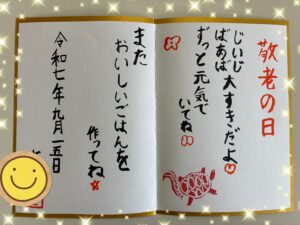 敬老の日
じいじ
ばあば
大すきだよ
ずっと元気で
いてね
また
おいしいごはんを
作ってね
令和七年九月一五日